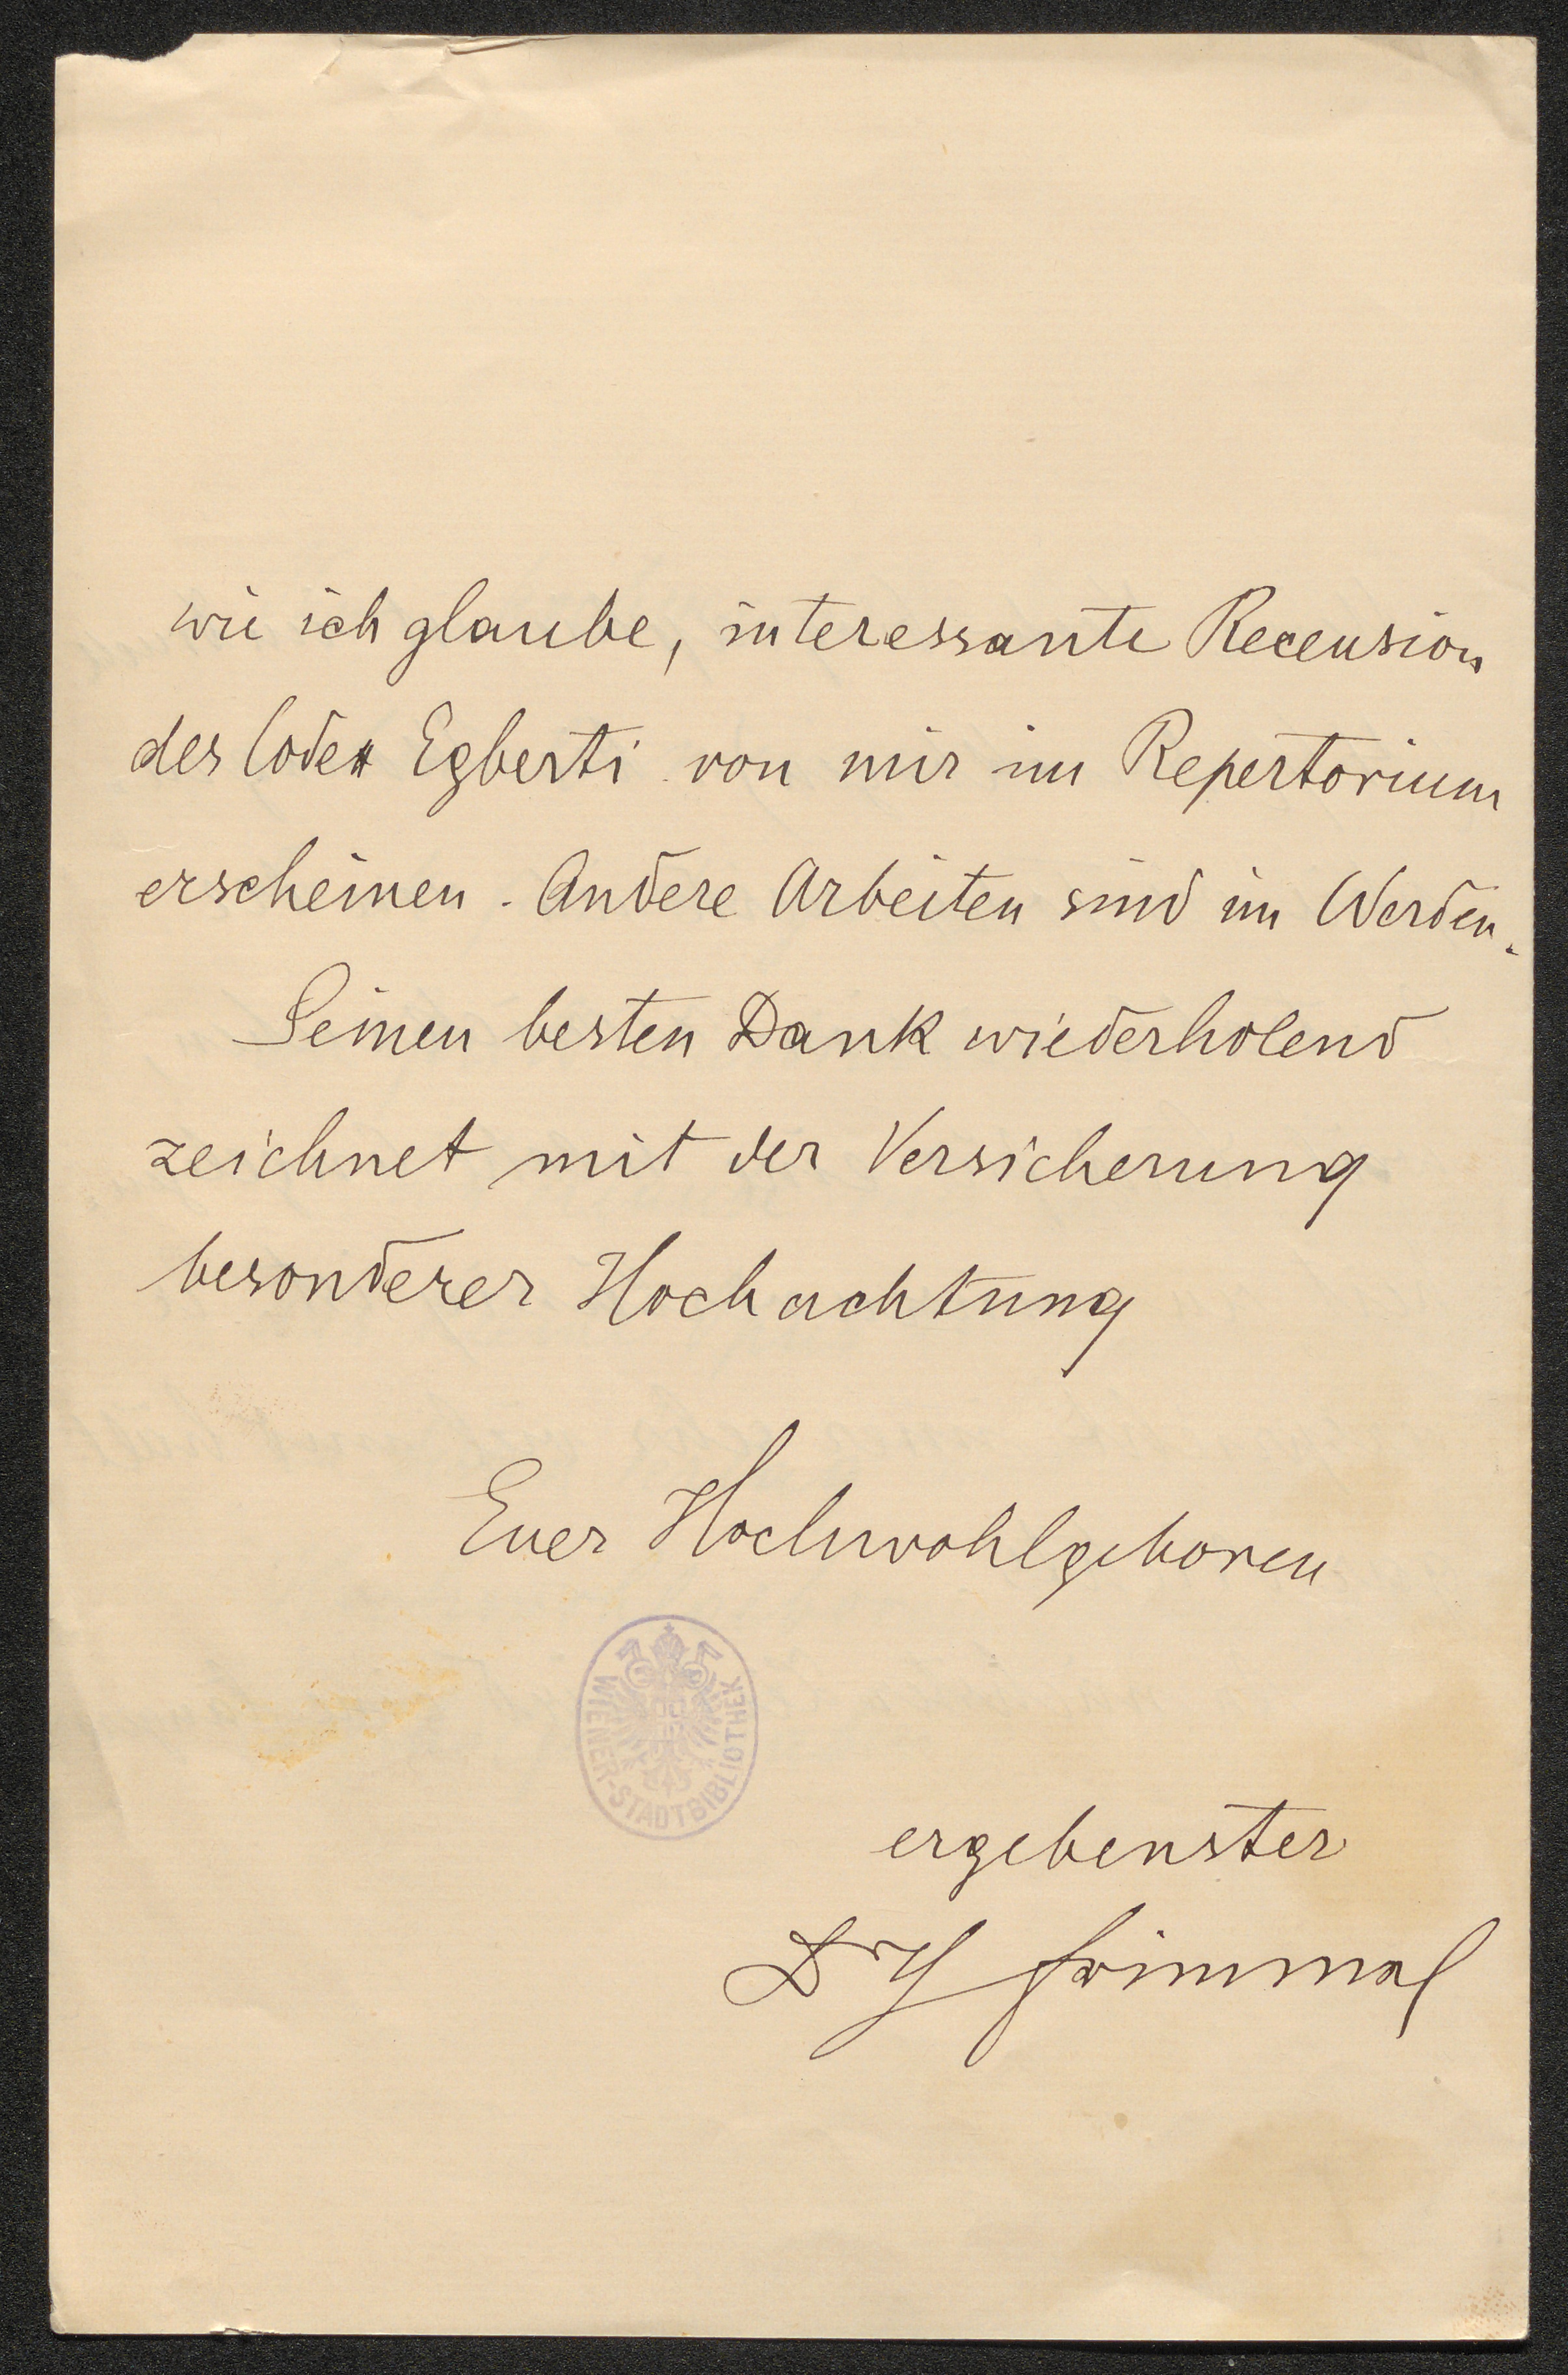 wie ich glaube, interessante Recension
des Codex Egberti von mir im Repertorium
erscheinen. Andere Arbeiten sind im Werden.
Seinen besten Dank wiederholend
zeichnet mit der Versicherung
besonderer Hochachtung
Euer Hochwohlgeboren
WIENER-STADTBIBLIOTHEK
ergebenster
Dr Frimmel